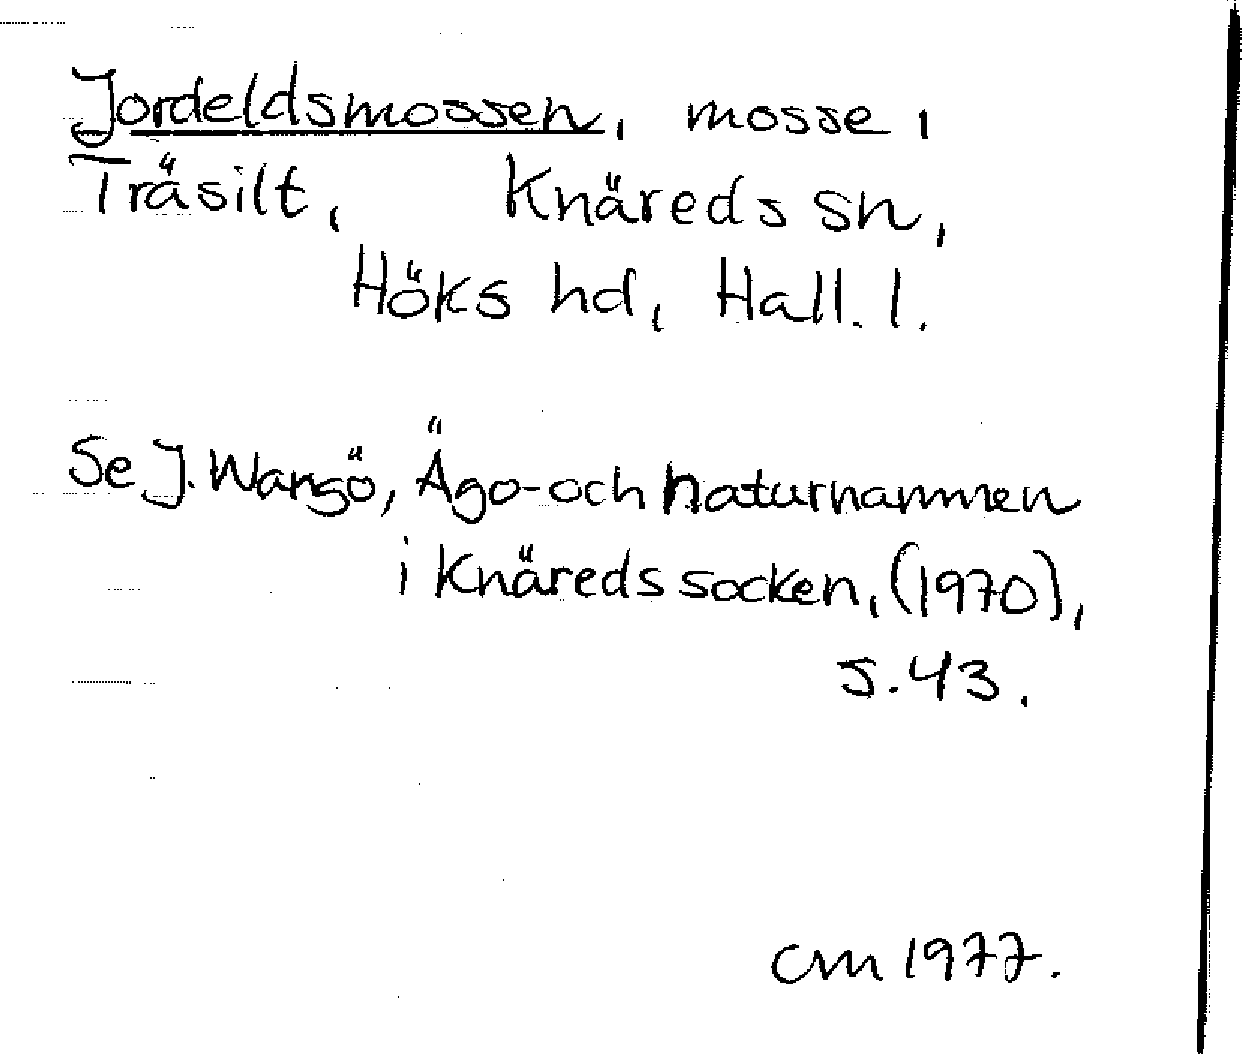 Jordeldsmossen, mosse,
Träsilt, Knäreds sn,
Höks hd, Hall. l.
Se J. Wangö, Ägo- och naturnamnen
i Knäreds socken, (1970),
s. 43.
CM 1977.